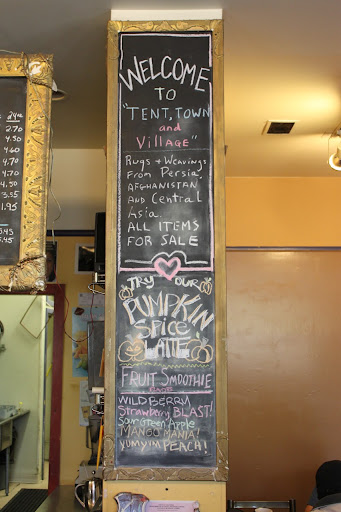 WELCOME
TO
"TENT, TOWN
and
Village"
Rugs + Weavings
From Persia,
AFGHANISTAN
AND Central
Asia.
ALL ITEMS
FOR SALE
TRY OUR
PUMPKIN
Spice
LATTE
FRUIT SMOOTHIE
WILDBERRY
Strawberry BLAST!
Sour Green Apple
MANGO MANIA!
YUM YUM PEACH!
2.70
4.50
4.60
4.70
4.70
4.50
3.55
1.95